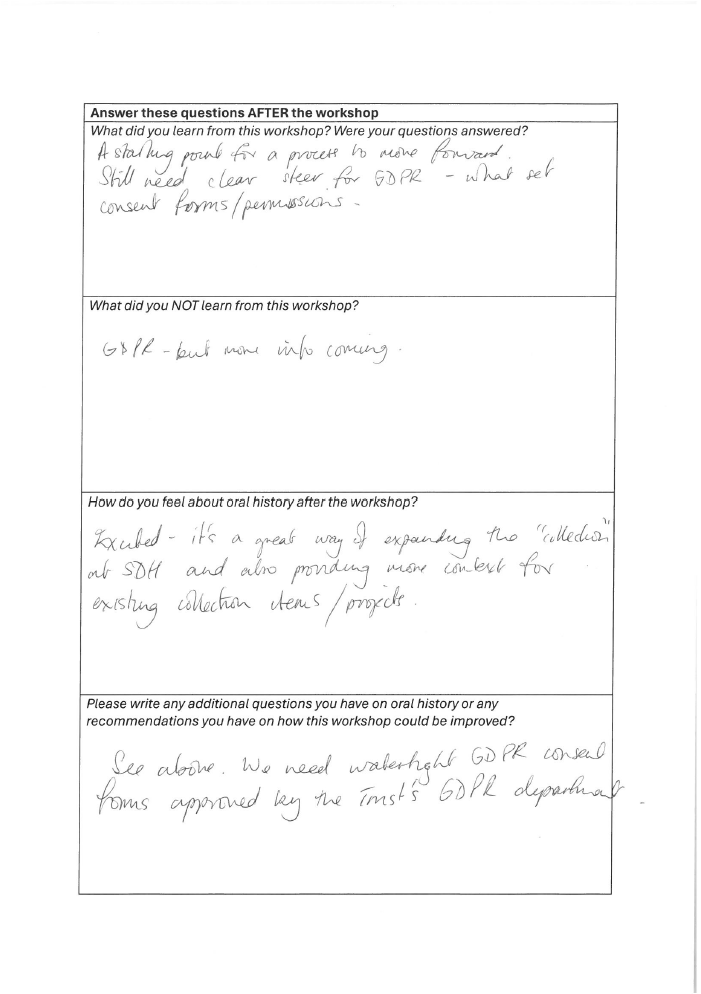 Answer these questions AFTER the workshop
What did you learn from this workshop? Were your questions answered?
A starting point for a process to move forward.
Still need clear steer for GDPR - what set
consent forms/permissions.
What did you NOT learn from this workshop?
GDPR - but more info coming.
How do you feel about oral history after the workshop?
Excited - it's a great way of expanding the "collection"
at SDH and also providing more context for
existing collection items/projects.
Please write any additional questions you have on oral history or any
recommendations you have on how this workshop could be improved?
See above. We need watertight GDPR consent
forms approved by the Trust's GDPR department